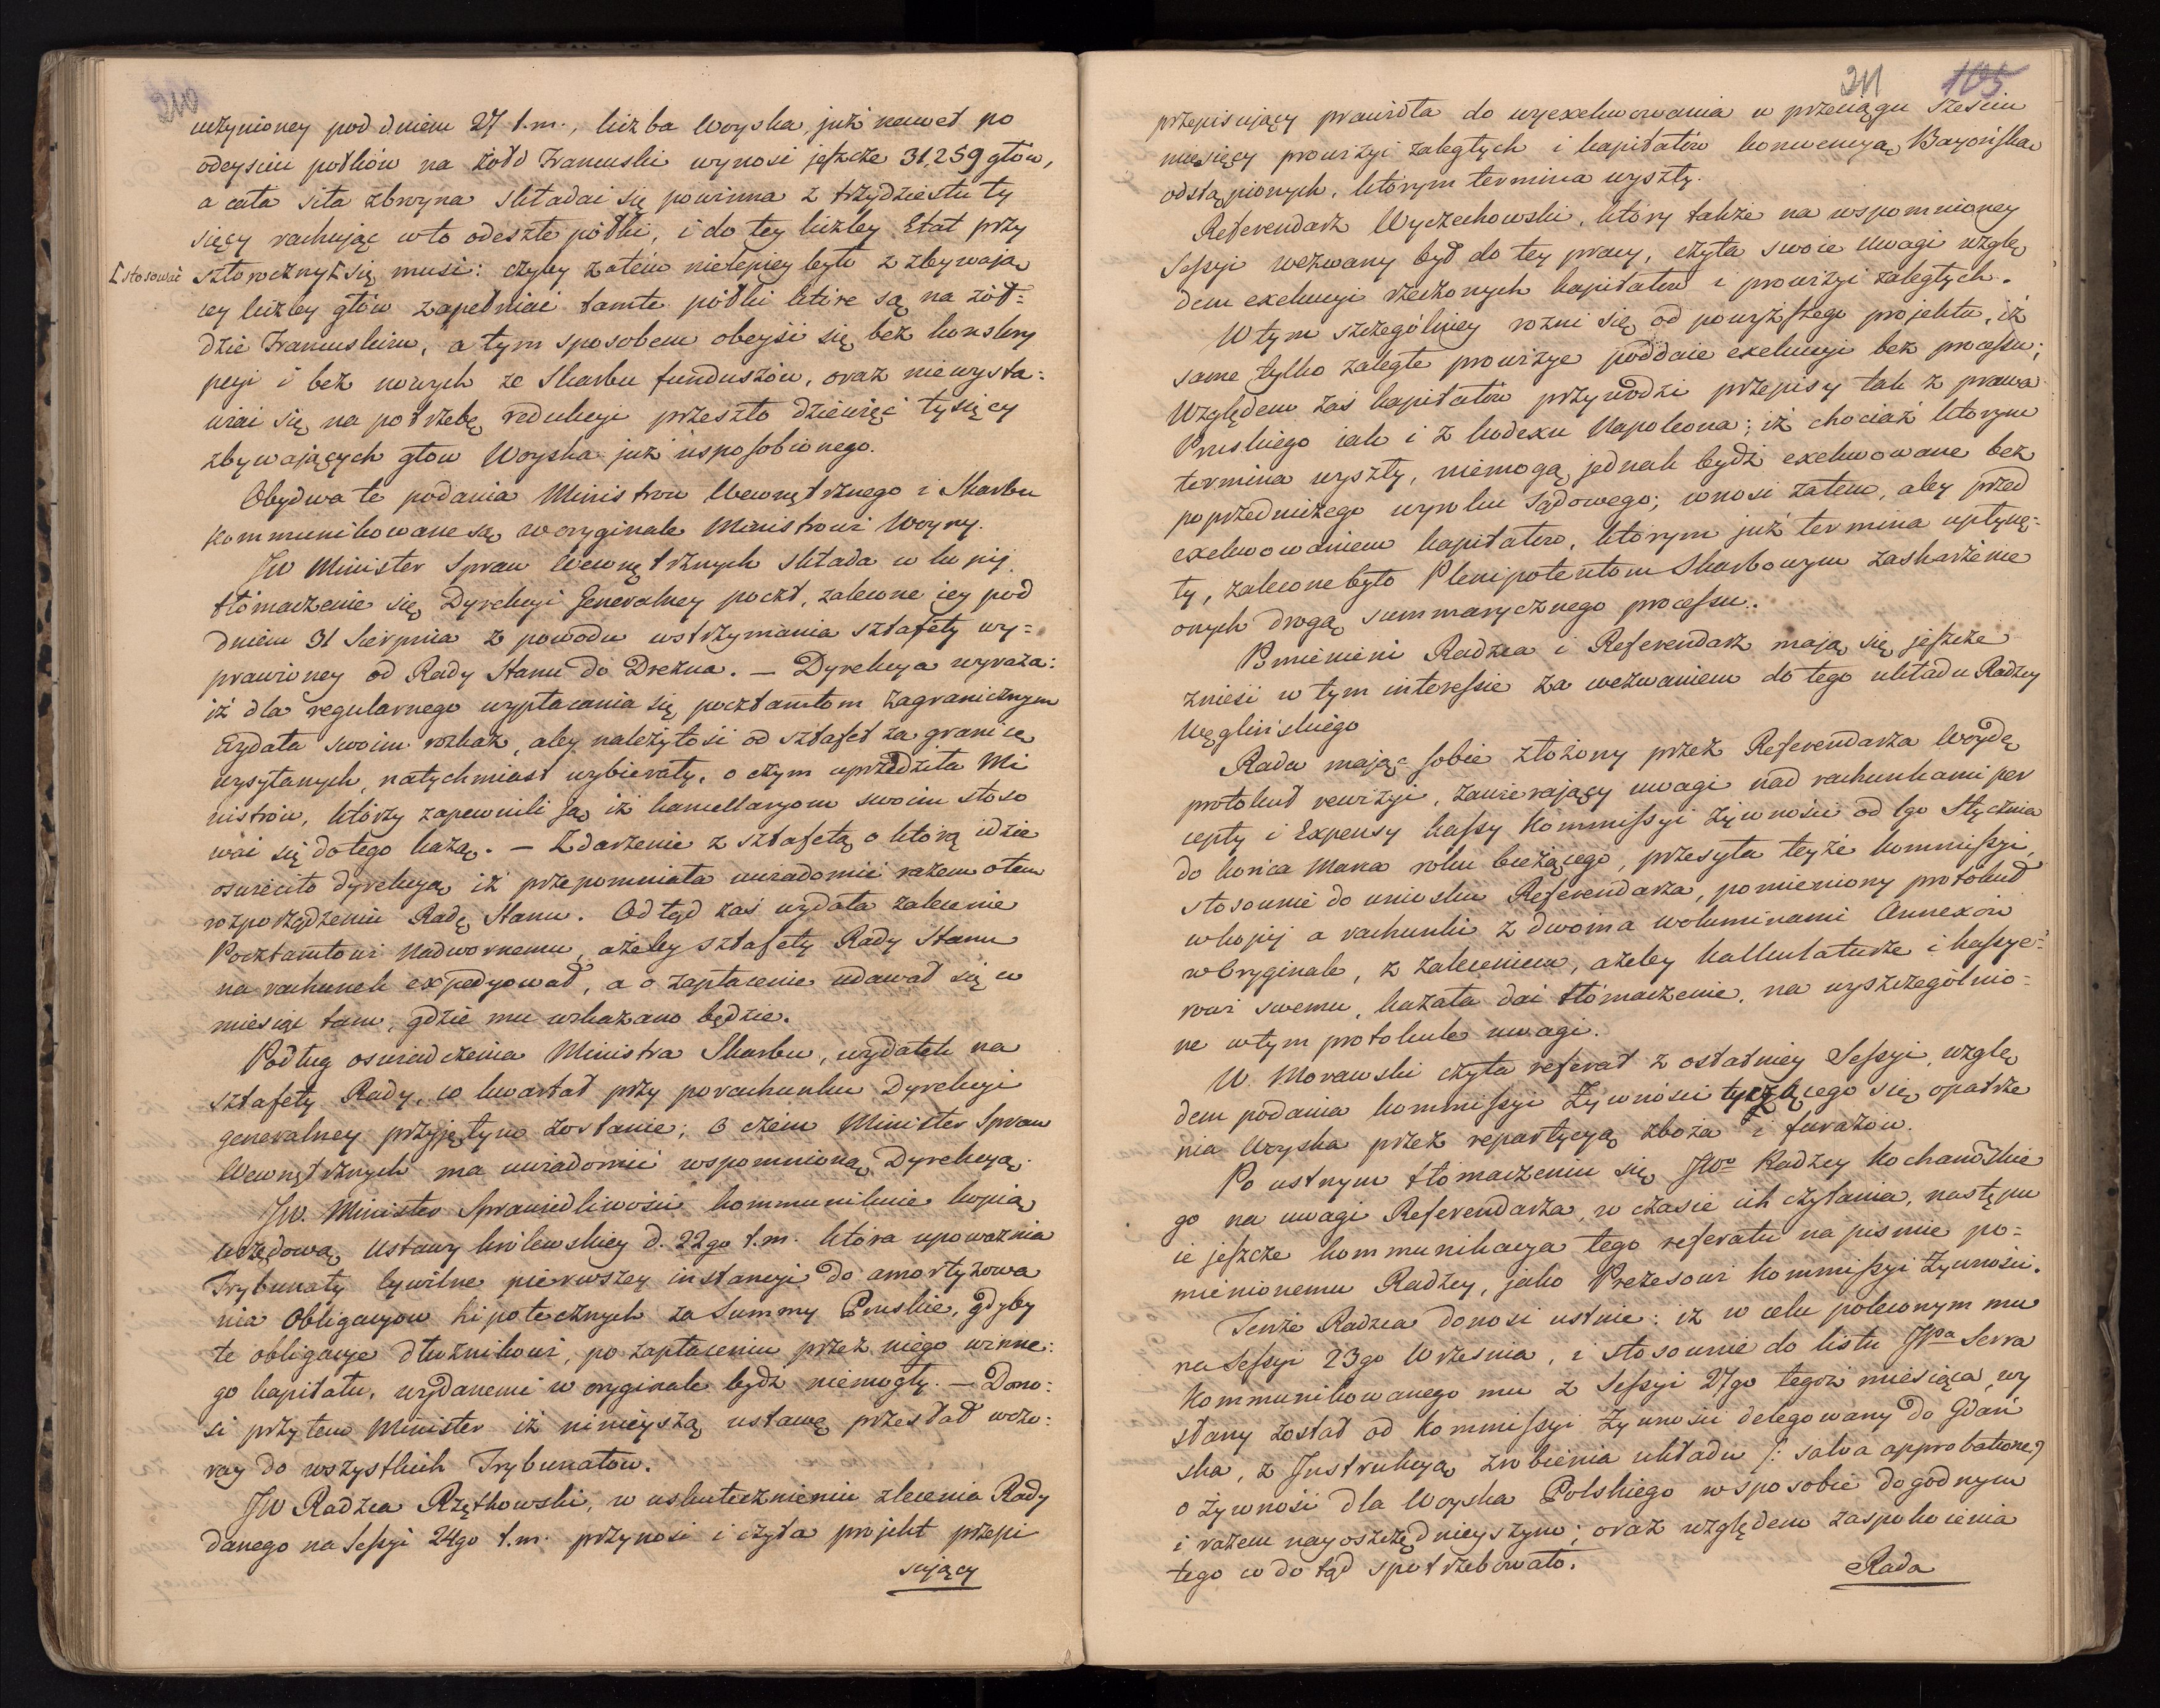 210
uczynioney pod dniem 27 t.m., liczba Woyska, już nawet po
odeyściu połków na żołd Francuski wynosi jeszcze 31,259 głów,
a cała siła zbroyna składać się powinna z trzydziestu ty
sięcy rachując w to odeszłe połki, i do tey liczby Etat przy
[stosować
szłoroczny [ się musi: czyby zatém nielepiey było z zbywaią
cey liczby głów zapełniać tamte półki które są na żoł=
dzie Francuskim, a tym sposobem obeyść się bez konskry
pcyi i bez nowych ze Skarbu funduszów, oraz niewysta=
wiać się na potrzebę redukcyi przeszło dziewięć tysięcy
zbywających głów Woyska już usposobionego.
Obydwa te podania Ministrów Wewnętrznego i Skarbu
kommunikowane są w oryginale Ministrowi Woyny.
JW Minister Spraw Wewnętrznych składa w kopij
tłómaczenie się Dyrekcyi Generalney poczt, zalecone iey pod
dniem 31 Sierpnia z powodu wstrzymania sztafety wy=
prawioney od Rady Stanu do Drezna. — Dyrekcya wyraża:
iż dla regularnego wypłacania się pocztamtom zagranicznym
wydała swoim rozkaz, aby należytości od sztafet za granicę
wysyłanych, natychmiast wybierały, o czym uprzedziła Mi
nistrów, którzy zapewnili ją iż kancellaryom swoim stoso
wać się do tego każą. — Zdarzenie z sztafetą o którą idzie
oświeciło dyrekcyą iż przepomniała uwiadomić razem o tem
rozporządzeniu Radę Stanu. Odtąd zaś wydała zalecenie
Pocztamtowi Nadwornemu, ażeby sztafety Rady Stanu
na rachunek expedyował, a o zapłacenie udawał się co
miesiąc tam, gdzie mu wskazano będzie.
Podług oświadczenia Ministra Skarbu, wydatek na
sztafety Rady, co kwartał przy porachunku Dyrekcyi
generalney przyjętym zostanie; o czem Minister Spraw
Wewnętrznych ma uwiadomić wspomnioną Dyrekcyą.
JW. Minister Sprawiedliwości kommunikuie kopią
urzędową Ustawy królewskiey d. 22go t.m. która upoważnia
Trybunały Cywilne pierwszey instancyi do amortyzowa
nia Obligacyow hipotecznych za Summy Pruskie, gdyby
te obligacye dłużnikowi, po zapłaceniu przez niego winne=
go kapitału, wydanemi w oryginale bydź niemogły. — Dono=
si przytem Minister iż ninieyszą ustawę przesłał wczo=
ray do wszystkich Trybunałów.
JW Radzca Rzętkowski, w uskutecznieniu zlecenia Rady
danego na Sessyi 24go t.m. przynosi i czyta projekt przepi
sujący
211 105
przepisujący prawidła do wyexekwowania w przeciągu sześciu
miesięcy prowizyi zaległych i kapitałów konwencyą Bayońską
odstąpionych, którym termina wyszły.
Referendarz Wyczechowski, który także na wspomnioney
Sessyi wezwany był do tey pracy, czyta swoie uwagi wzglę
dem exekucyi rzeczonych kapitałów i prowizyi zaległych.
W tym szczególniey rożni się od powyższego projektu, iż
same tylko zaległe prowizye poddaie exekucyi bez processu;
Względem zaś kapitałów przywodzi przepisy tak z prawa
Pruskiego iak i z kodexu Napoleona; iż chociaż którym
termina wyszły, niemogą jednak bydź exekwowane bez
poprzedniczego wyroku Sądowego; wnosi zatem, aby przed
exekwowaniem kapitałów, którym już termina upłynę=
ły, zalecone było Plenipotentom Skarbowym zaskarżenie
onych drogą summarycznego processu.
Pomienieni Radzca i Referendarz mają się jeszcze
znieść w tym interessie za wezwaniem do tego układu Radzcy
Węglińskiego
Rada mając sobie złożony przez Referendarza Woydę
protokuł rewizyi, zawierający uwagi nad rachunkami per
cepty i Expensy kassy Kommissyi Żywności od 1go Stycznia
do końca Marca roku bieżącego, przesyła teyże kommissyi,
stosownie do wniosku Referendarza, pomieniony protokuł
w kopij a rachunki z dwoma woluminami Annexów
w Oryginale, z zaleceniem, ażeby kalkulaturze i kassye=
rowi swemu, kazała dać tłómaczenie, na wyszczególnio=
ne w tym protokule uwagi.
W. Morawski czyta referat z ostatniey Sessyi, wzglę
dem podania kommissyi Żywności tyczącego się opatrze
nia Woyska przez repartycyą zboża i furażów.
Po ustnym tłómaczeniu się JWo Radzcy Kochanowskie
go na uwagi Referendarza, w czasie ich czytania, następu
ie jeszcze kommunikacya tego referatu na piśmie po=
mienionemu Radzcy, jako Prezesowi kommissyi Żywności.
Tenże Radzca donosi ustnie: iż w celu poleconym mu
na Sessyi 23go Września, i stosownie do listu JPa Serra
kommunikowanego mu z Sessyi 27go tegoż miesiąca, wy
słany został od Kommissyi Żywności delegowany do Gdań
ska, z Instrukcyą zrobienia układu /: salva approbatione :/
o żywność dla Woyska Polskiego w sposobie dogodnym
i razem nayoszczędnieyszym; oraz względem zaspokoienia
tego co dotąd spotrzebowało.
Rada